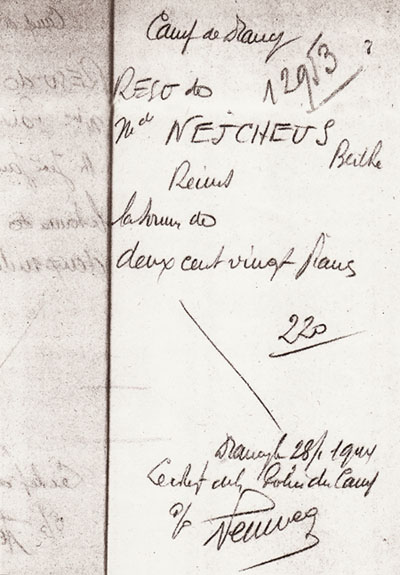 Camp de Drancy
12953 ?
RESU de
Me NEJCHEUS
Berthe
Reims
la somme de
deux cent vingt Francs
220
Drancy le 28/1 1944
Le chef de la Police du Camp